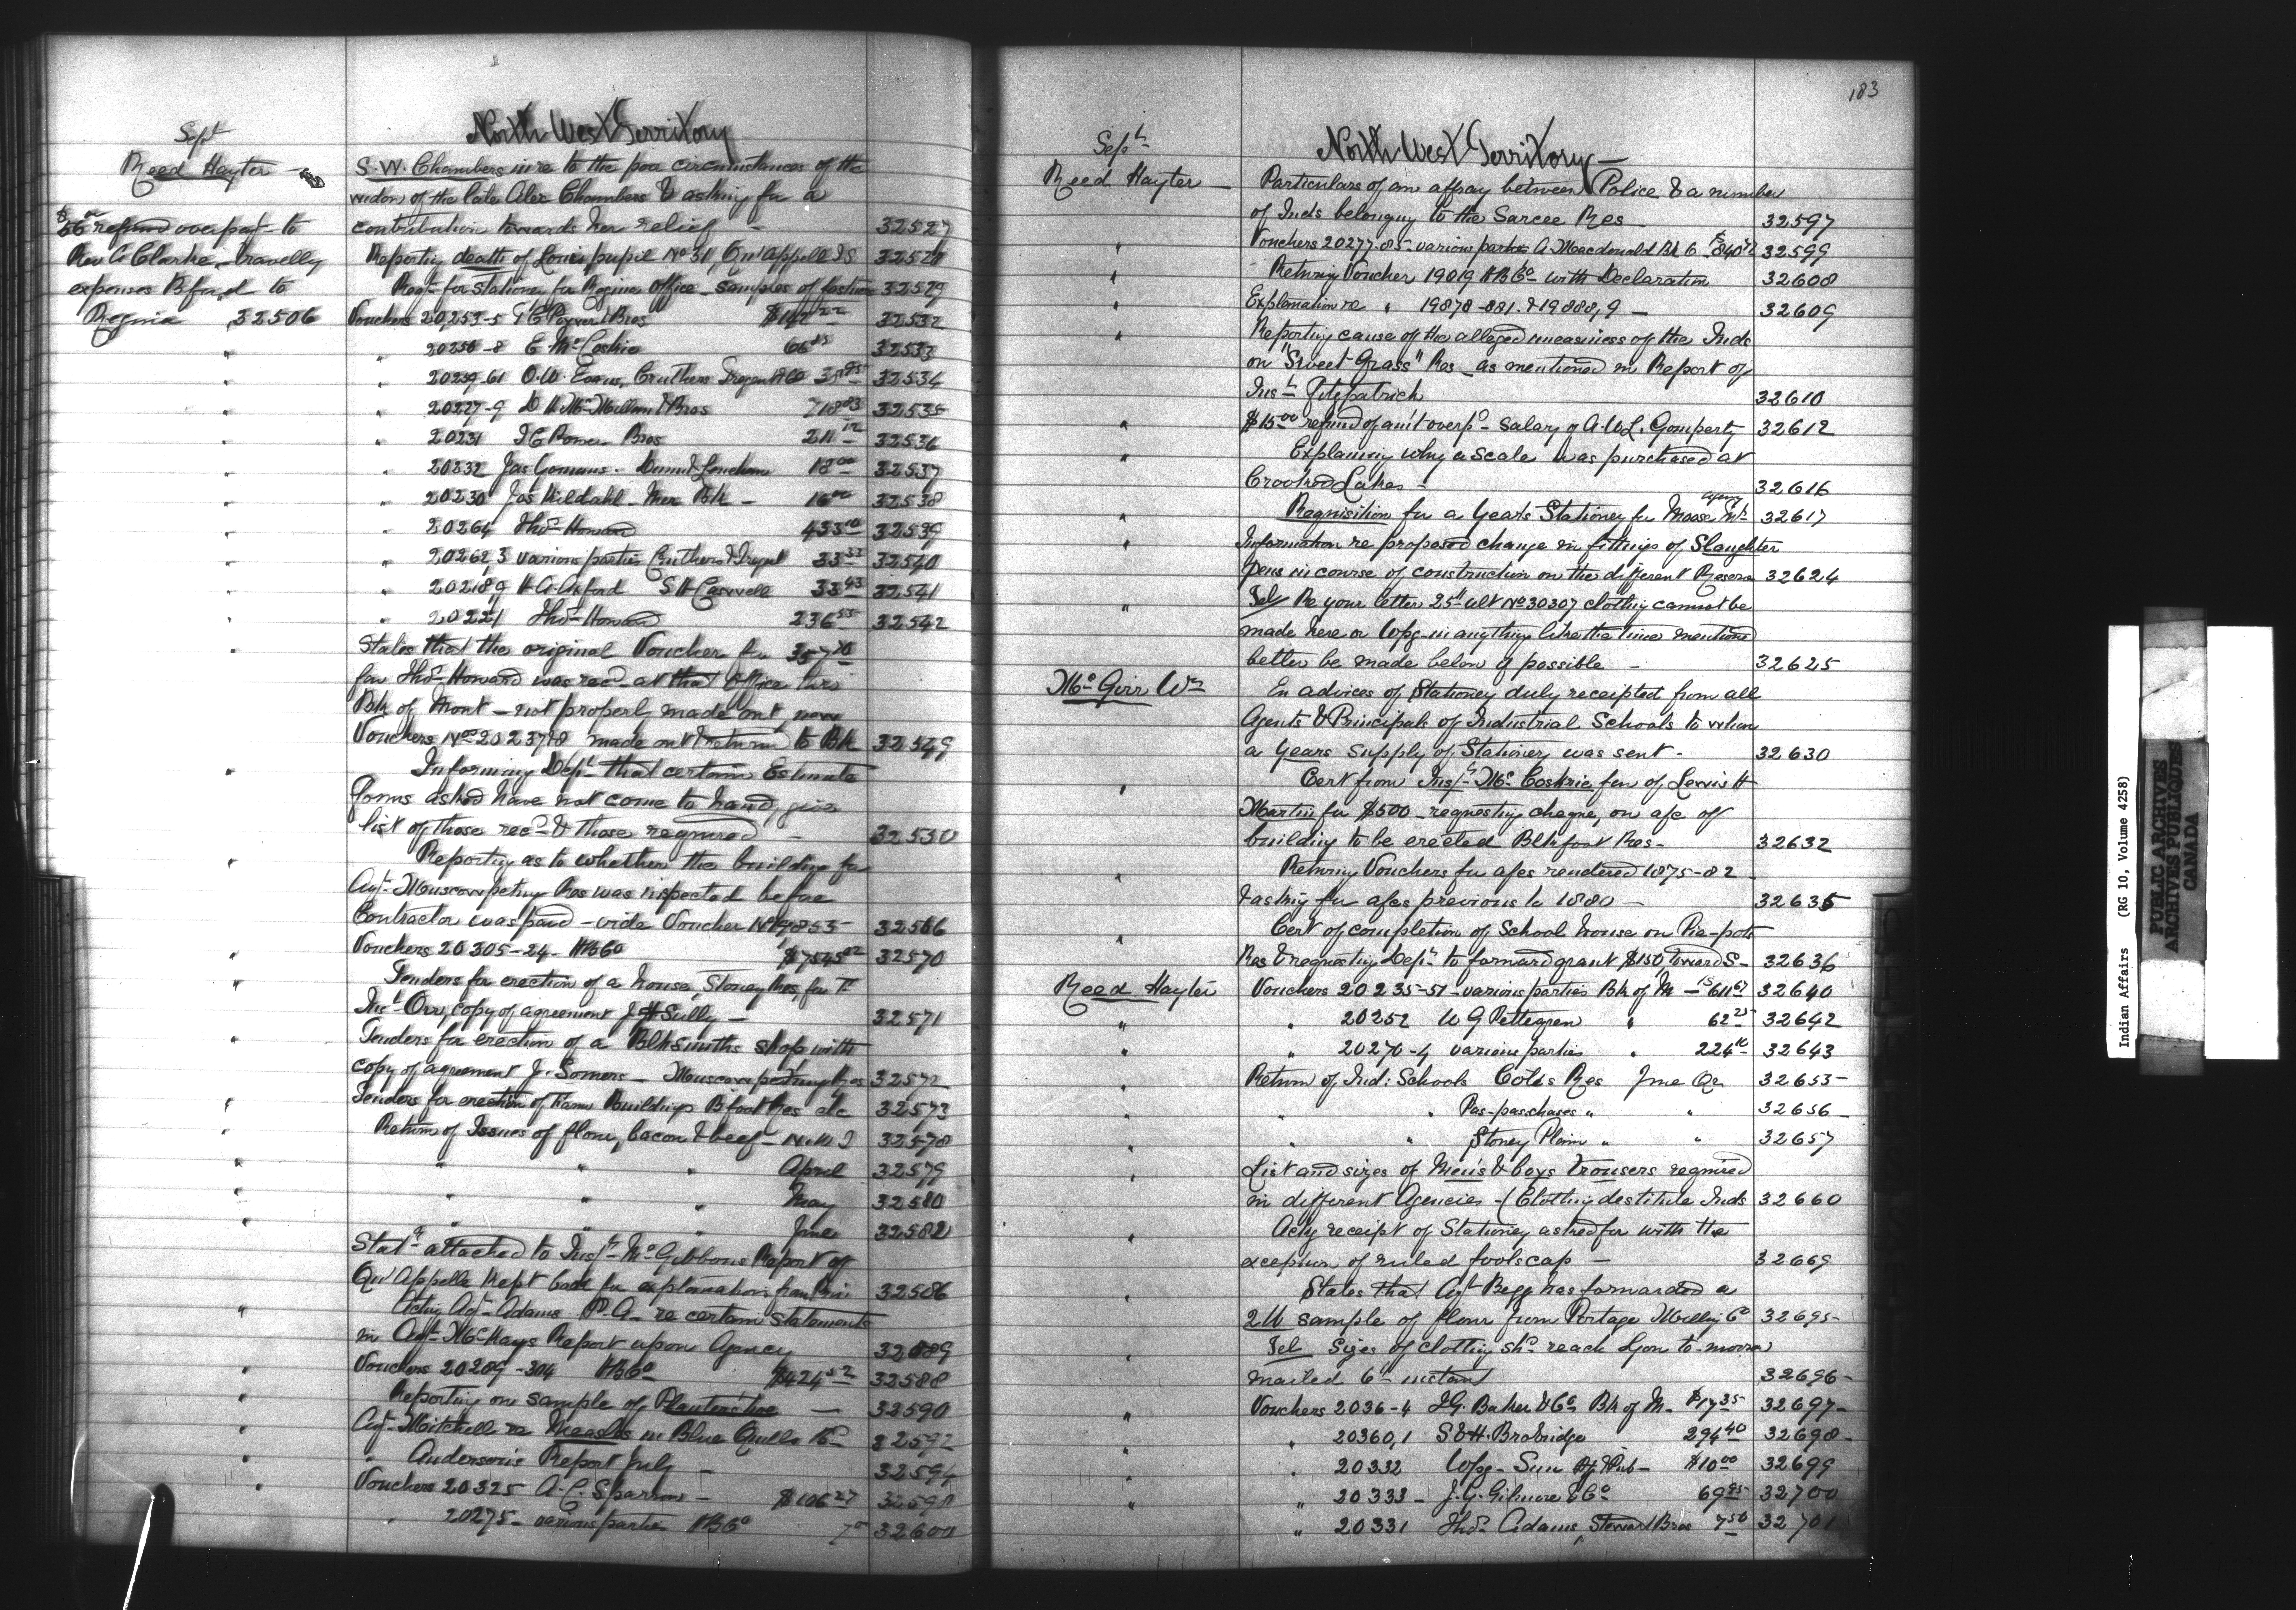 Sept
North West Territory
Reed Hayter
S. W. Chambers in re to the poor circumstances of the
widow of the late Alex Chambers & asking for a
contribution towards her relief - 32527
refund overpayt to
Rev Clarke, travellg
expenses Bford to
Regina 32506
Reporting death of Louis pupil No 31, Qu'Appelle IS 32528
Reqn for Stationery for Regina Office - samples of 32529
Vouchers 20,253-5 Bros 32532
" 20256-8 E McCoskrie 32533
" 20259-61 O.W. Evans, Cruthers 32534
" 20227-9 D H McMillan & Bros 718 83 32535
" 20231 Bros 32536
" 20232 Jas 18 00 32537
" 20230 Jos Kildahl - Mer Bk - 16 00 32538
" 20264 Thos Howard 433 10 32539
" 20262,3 various parties 33 33 32540
" 20218,9 H A Axford S H Caswell 33 43 32541
" 20221 Thos Howard 236 55 32542
" States that the original Voucher for
for Thos Howard was recd at that Office
Bk of Mont - not properly made out, new
Vouchers Nos 20237,8 made out & returnd to Bk 32549
" Informing Dept that certain Estimate
forms asked have not come to hand, gives
list of those recd & those required - 32550
" Reporting as to whether the building for
Agt Muscowpetung Res was inspected before
Contractor was paid - vide Voucher No 19853 32566
" Vouchers 20305-24 - HBCo $7545 02 32570
" Tenders for erection of a house, Stoney Res, for
Orr, copy of agreement J H Sully - 32571
" Tenders for erection of a Blksmiths shop with
copy of agreement J. Somers - Muscowpetung Res 32572
" Tenders for erection of Farm Buildings Bfoot Res etc 32573
" Return of Issues of flour, bacon & beef - N.W.T 32578
" " " " April 32579
" " " " May 32580
" " " " June 32582
Statt attached to Inspt McGibbons Report of
Qu'Appelle Kept back for explanation from 32586
" Actg Agt Adams P. A. re certain statements
in Agt McKays Report upon Agency 32589
" Vouchers 20289-304 HBCo $424 52 32588
" Reporting on sample of 32590
" Agt Mitchell re Measles in Blue Quills 32592
" Anderson's Report July - 32594
" Vouchers 20325 A. C. Sparrow - $106 27 32598
" 20275 - various parties HBCo 32600
183
Sept
North West Territory -
Reed Hayter - Particulars of an affray between Police & a number
of Inds belonging to the Sarcee Res 32597
" Vouchers 20277-85 - various parties A. Macdonald Bk 32599
" Returng Voucher 19019 HBCo with Declaration 32608
" Explanation re " 19878-881 & 19888,9 - 32609
" Reporting cause of the alleged uneasiness of the Inds
on "Sweet Grass" Res - as mentioned in Report of
Inst Fitzpatrick 32610
" $15 00 refund of am't overpd salary of A.W.L. Gomperty 32612
" Explaining why a scale was purchased at
Crooked Lakes - 32616
" Requisition for a Years Stationery for Moose Mt agency 32617
" Information re proposed change in fittings of Slaughter
pens in course of construction on the different Reserves 32624
" Tel Re your letter 25th ult No 30307 clothing cannot be
made here or Wpg in anything like the time mentioned
better be made below if possible - 32625
McGirr Wm En advices of Stationery duly receipted from all
Agents & Principals of Industrial Schools to whom
a Years supply of Stationery was sent - 32630
" Cert from Inspt McCoskrie fav of Lewis H
Martin for $500 requesting cheque, on a/c of
building to be erected Blkfoot Res - 32632
" Returng Vouchers for a/cs rendered 1875-82
& asking for a/cs previous to 1880 - 32635
" Cert of completion of School house on Pia-pots
Res & requesting Dept to forward grant $150 towards - 32636
Reed Hayter Vouchers 20235-51 - various parties Bk of M - 32640
" " 20252 W G Pettegrew " 62 25 32642
" " 20270-4 various parties " 224 16 32643
" Return of Ind: Schools Cotés Res June Qr 32653
" " " Pas-paschases " " 32656
" " " Stoney Plain " " 32657
" List and sizes of Men's & boys trousers required
in different Agencies - (Clothing destitute Inds 32660
" Ackg receipt of Stationery asked for with the
exception of ruled foolscap - 32669
" States that Agt Begg has forwarded a
2 lb sample of flour from Portage Milling Co 32695
" Tel Sizes of clothing shd reach you to-morrow
mailed 6th instant 32696
" Vouchers 2036-4 I G. Baker & Co Bk of M - $17 35 32697
" " 20360,1 S & H. Brobridge 294 40 32698
" " 20332 Wpg - Sun Ptg & Pub - $10 00 32699
" " 20333 - J. G. Gilmore & Co 69 95 32700
" 20331 Thos Adams, Steward Bros 7 50 32701
Indian Affairs (RG 10, Volume 4258)
PUBLIC ARCHIVES
ARCHIVES PUBLIQUES
CANADA